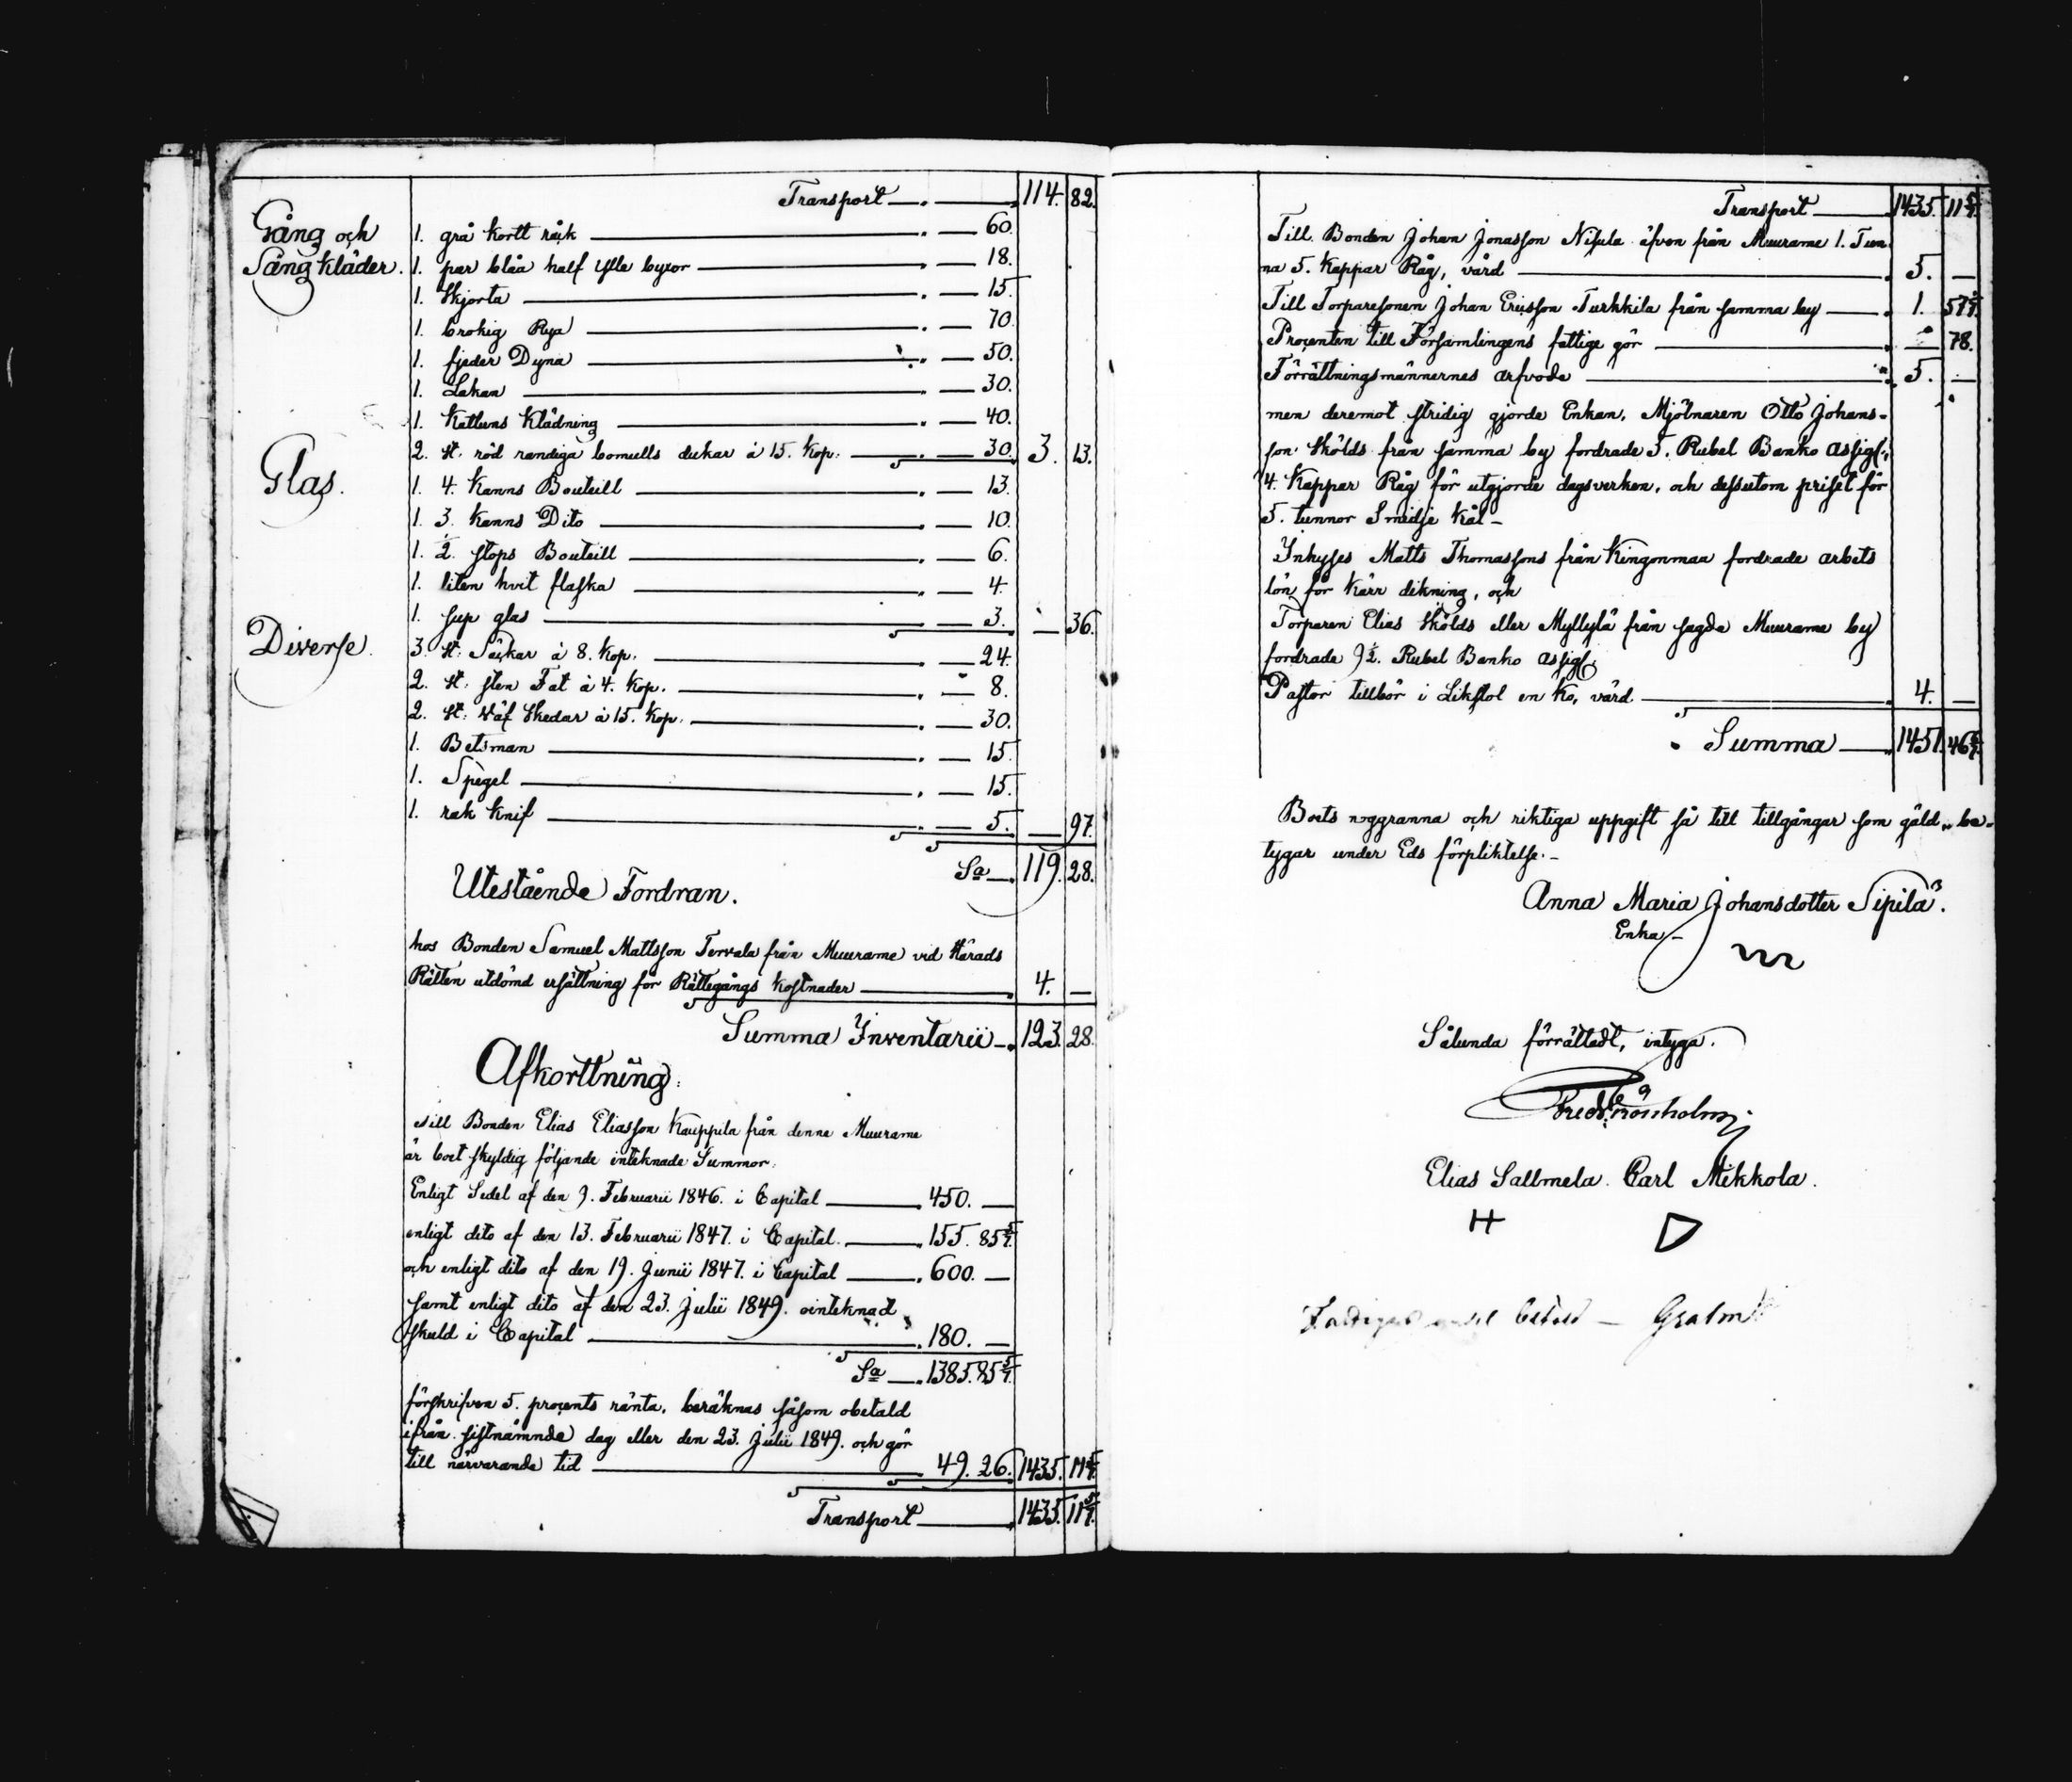 Transport 114. 82.
Gång och
Sängkläder.
1. grå kortt råck 60.
1. par blåa half ylle byxor 18.
1. Skjorta 15.
1. brokig Rya 70.
1. fjeder Dyna 50.
1. Lakan 30.
1. Kattuns Klädning 40.
2. st. röd randiga bomulls dukar à 15. Kop. 30. 3. 13.
Glas.
1. 4. Kanns Bouteill 13.
1. 3. Kanns Dito 10.
1. ½ stops Bouteill 6.
1. liten hvit flaska 4.
1. sup glas 3. — 36.
Diverse.
3. st. Säckar à 8. Kop. 24.
2. st. sten Fat à 4. Kop. 8.
2. st. Väf Skedar à 15. Kop. 30.
1. Betsman 15.
1. Spegel 15.
1. rak knif 5. — 97.
Sa 119. 28.
Utestående Fordran.
hos Bonden Samuel Mattsson Tervala från Muurame vid Härads
Rätten utdömd ersättning för Rättegångs kostnader 4. —
Summa Inventarii 123. 28.
Afkorttning:
till Bonden Elias Eliasson Kauppila från denne Muurame
är boet skyldig följande inteknade Summor:
Enligt Sedel af den 9. Februarii 1846. i Capital 450. —
enligt dito af den 13. Februarii 1847. i Capital. 155. 85 5/7.
och enligt dito af den 19. Junii 1847. i Capital 600. —
samt enligt dito af den 23. Julii 1849. ointeknad
skuld i Capital 180. —
Sa 1385. 85 5/7.
förskrifven 5. procents ränta, beräknas såsom obetald
ifrån sistnämnde dag eller den 23. Julii 1849. och gör
till närvarande tid 49. 26. 1435. 11 5/7.
Transport 1435. 11 5/7.
Transport 1435. 11 5/7.
Till Bonden Johan Jonasson Nisula äfven från Muurame 1. Tun
na 5. Kappar Råg, värd 5. —
Till Torparesonen Johan Ericsson Turkkila från samma by 1. 57 1/7.
Procenten till Församlingens fattige gör — 78.
Förrättningsmännernes arfvode 5. —
men deremot stridig gjorde Enkan, Mjölnaren Otto Johans-
son Skölds från samma by fordrade 5. Rubel Banko Assign.,
4. Kappar Råg för utgjorde dagsverken, och dessutom priset för
5. tunnor Smidje kål –
Inhyses Matts Thomassons från Kingonmaa fordrade arbets
lön för kärr dikning, och
Torparen Elias Skölds eller Myllylä från sagde Muurame by
fordrade 9½. Rubel Banko Assign.
Pastor tillkör i Likstol en Ko, värd 4. —
Summa 1451. 46 6/7.
Boets noggranna och riktiga uppgift så till tillgångar som gäld, be-
tygar under Eds förpliktelse. –
Anna Maria Johansdotter Sipilä.
Enka –
Sålunda förrättadt, intyga.
Elias Sallmela. Carl Mikkola.